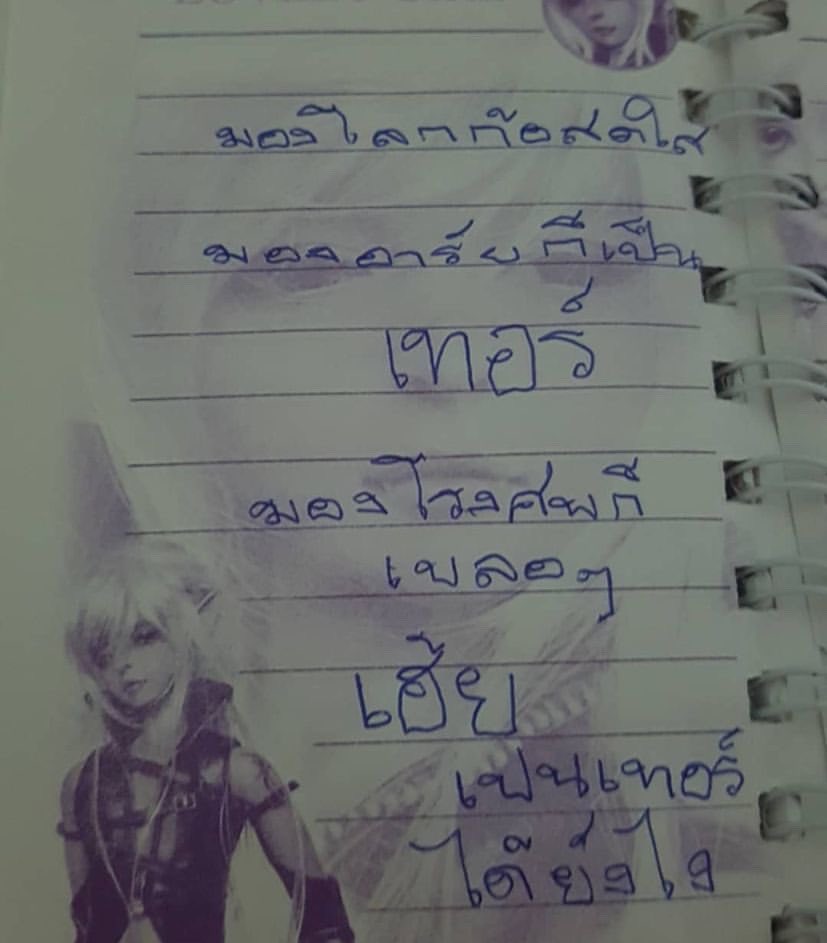 มองโลกก้อสดใส
มองอารัยก็เป็น
เทอร์
มองโรงศพก็
เบลอๆ
เฮ้ย
เปนเทอร์
ได้ยังไง